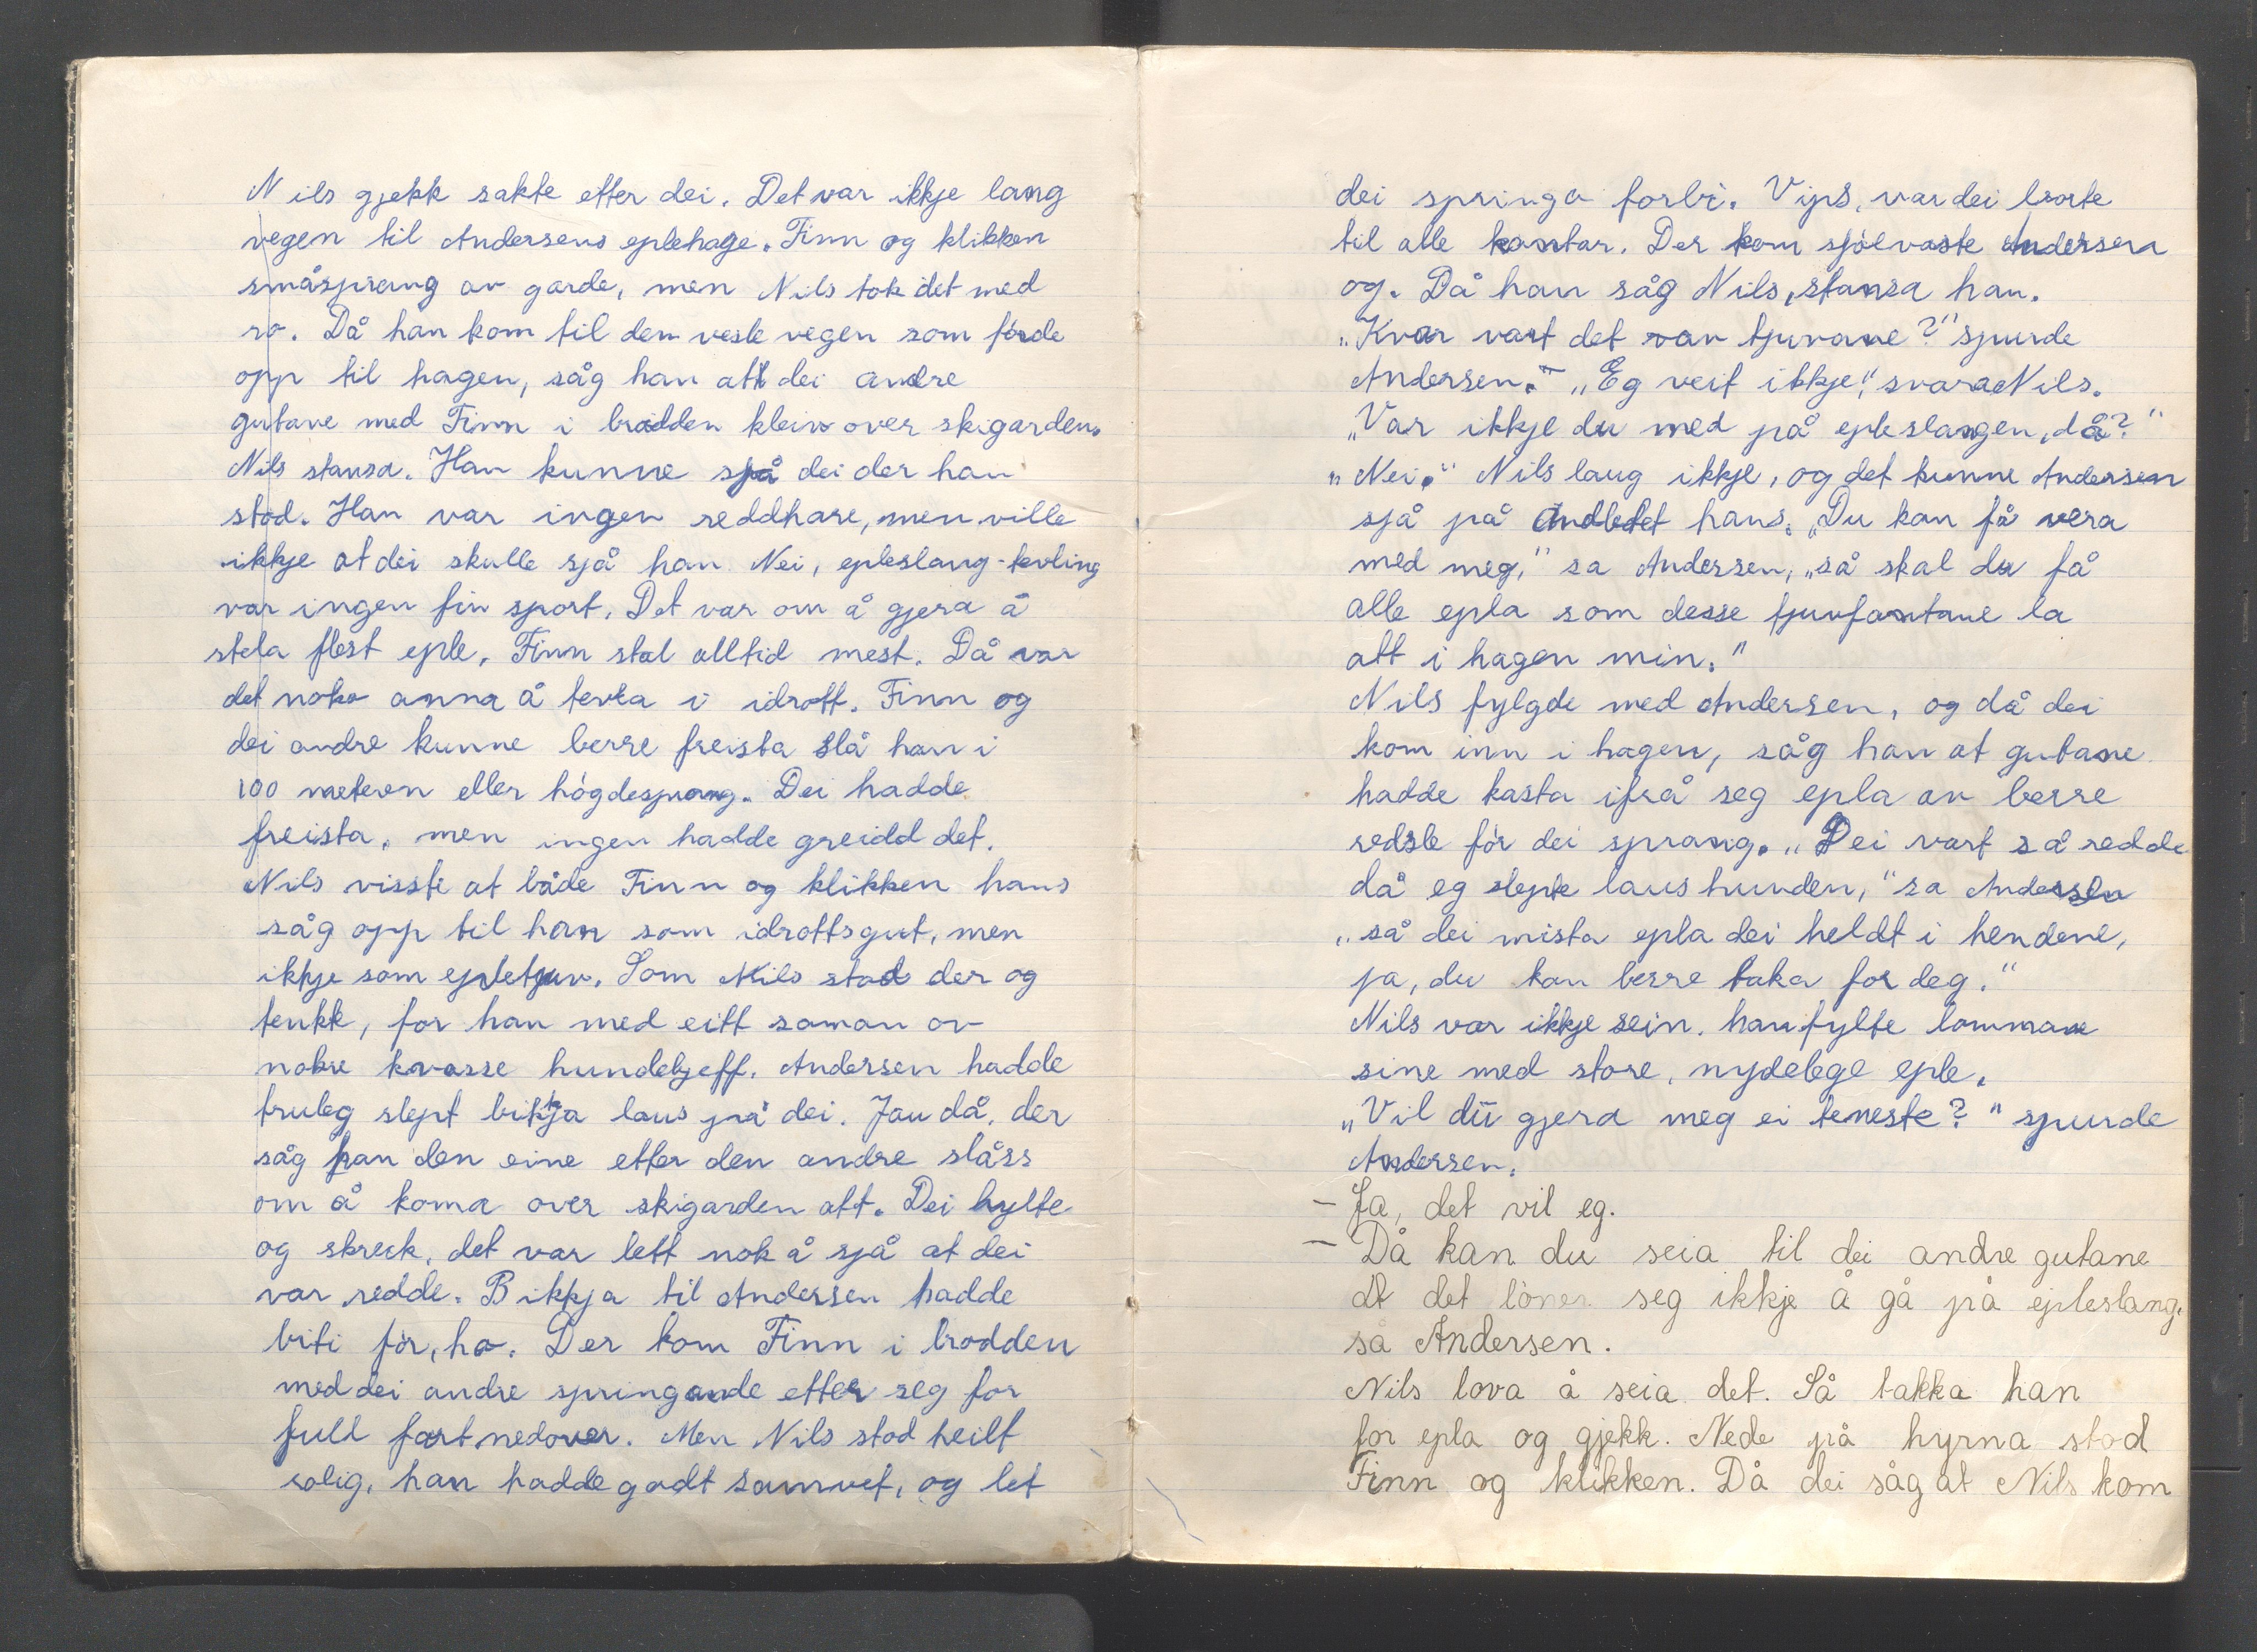 Nils gjekk sakte etter dei. Det var ikkje lang
vegen til Andersens eplehage. Finn og klikken
småsprang av garde, men Nils tok det med
ro. Då han kom til den vesle vegen som förde
opp til hagen, såg han att dei andre
gutane med Finn i brodden kleiv over skigarden.
Nils stansa. Han kunne sjå dei der han
stod. Han var ingen reddhare, men ville
ikkje at dei skulle sjå han. Nei, epleslang-tevling
var ingen fin sport. Det var om å gjera å
stela flest eple. Finn stal alltid mest. Då var
det noko anna å tevla i idrott. Finn og
dei andre kunne berre freista slå han i
100 meteren eller högdesprang. Dei hadde
freista, men ingen hadde greidd det.
Nils visste at både Finn og klikken hans
såg opp til han som idrottsgut, men
ikkje som epletjuv. Som Nils stod der og
tenkt, for han med eitt saman av
nokre kvasse hundebjeff. Andersen hadde
truleg slept bikkja laus på dei. Jau då, der
såg han den eine etter den andre slåss
om å koma over skigarden att. Dei hylte
og skreik, det var lett nok å sjå at dei
var redde. Bikkja til Andersen hadde
biti för, ho. Der kom Finn i brodden
med dei andre springande etter seg for
full fart nedover. Men Nils stod heilt
rolig, han hadde godt samvet, og let
dei springa forbi. Vips, var dei borte
til alle kantar. Der kom sjölvaste Andersen
og. Då han såg Nils, stansa han.
„Kvar vart det av tjuvane?" spurde
Andersen. – „Eg veit ikkje," svara Nils.
„Var ikkje du med på epleslangen, då?"
„Nei." Nils laug ikkje, og det kunne Andersen
sjå på andletet hans. „Du kan få vera
med meg," sa Andersen, „så skal du få
alle epla som desse tjuvfantane la
att i hagen min."
Nils fylgde med Andersen, og då dei
kom inn i hagen, såg han at gutane
hadde kasta ifrå seg epla av berre
redsle för dei sprang. „Dei vart så redde
då eg slepte laus hunden," sa Andersen
„så dei mista epla dei heldt i hendene,
ja, du kan berre taka for deg."
Nils var ikkje sein. han fylte lommane
sine med store, nydelege eple.
„Vil du gjera meg ei teneste?" spurde
Andersen.
– Ja, det vil eg.
– Då kan du seia til dei andre gutane
at det löner seg ikkje å gå på epleslang,
sa Andersen.
Nils lova å seia det. Så takka han
for epla og gjekk. Nede på hyrna stod
Finn og klikken. Då dei såg at Nils kom